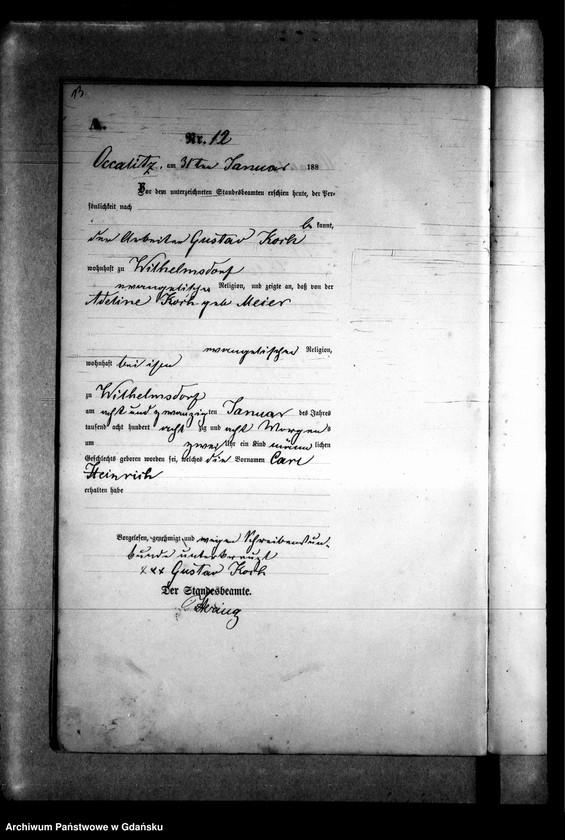 13
A.
Nr. 12
Occalitz, am 31ten Januar 188
Vor dem unterzeichneten Standesbeamten erschien heute, der Per-
sönlichkeit nach
be kannt,
der Arbeiter Gustav Koch
wohnhaft zu Wilhelmsdorf
evangelischer Religion, und zeigte an, daß von der
Adeline Koch geb Meier
evangelischer Religion,
wohnhaft bei ihm
zu Wilhelmsdorf
am acht und zwanzigten Januar des Jahres
tausend acht hundert acht zig und acht Morgens
um zwei Uhr ein Kind männ lichen
Geschlechts geboren worden sei, welches die Vornamen Carl
Heinrich
erhalten habe
Vorgelesen, genehmigt und wegen Schreibensun-
kunde unterkreuzt
xxx Gustav Koch
Der Standesbeamte.
Archiwum Państwowe w Gdańsku